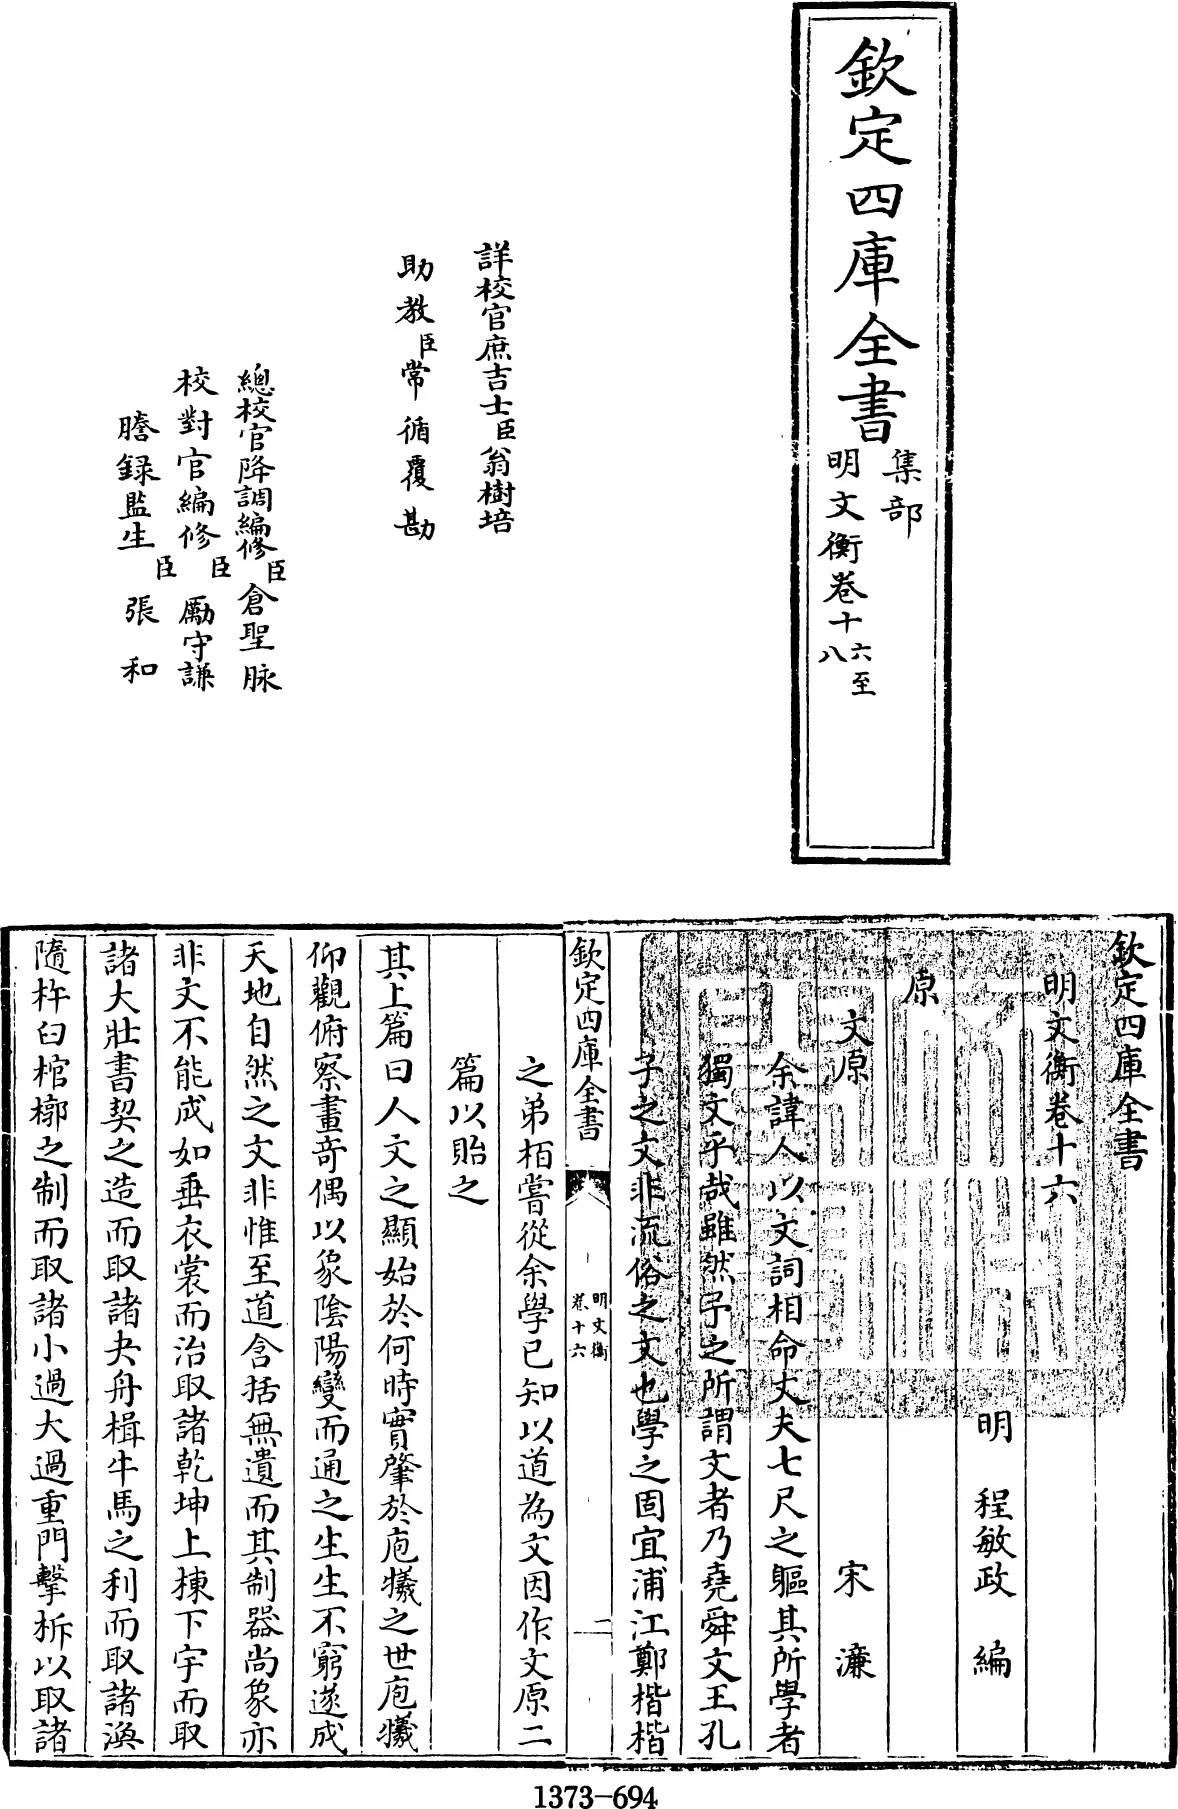 欽定四庫全書
集部
明文衡卷十六至八
詳校官庶吉士臣翁樹培
助教臣常循覆勘
總校官降調編修臣倉聖脉
校對官編修臣勵守謙
謄録監生臣張和
欽定四庫全書
明文衡卷十六
明 程敏政 編
原
文原 宋濂
余諱人以文詞相命丈夫七尺之軀其所學者
獨文乎哉雖然予之所謂文者乃堯舜文王孔
子之文非流俗之文也學之固宜浦江鄭楷楷
欽定四庫全書
明文衡
卷十六
一
之弟栢嘗從余學已知以道為文因作文原二
篇以貽之
其上篇曰人文之顯始於何時實肇於庖犧之世庖犧
仰觀俯察畫奇偶以象陰陽變而通之生生不窮遂成
天地自然之文非惟至道含括無遺而其制器尚象亦
非文不能成如垂衣裳而治取諸乾坤上棟下宇而取
諸大壯書契之造而取諸夬舟楫牛馬之利而取諸渙
隨杵臼棺槨之制而取諸小過大過重門擊柝以取諸
1373-694